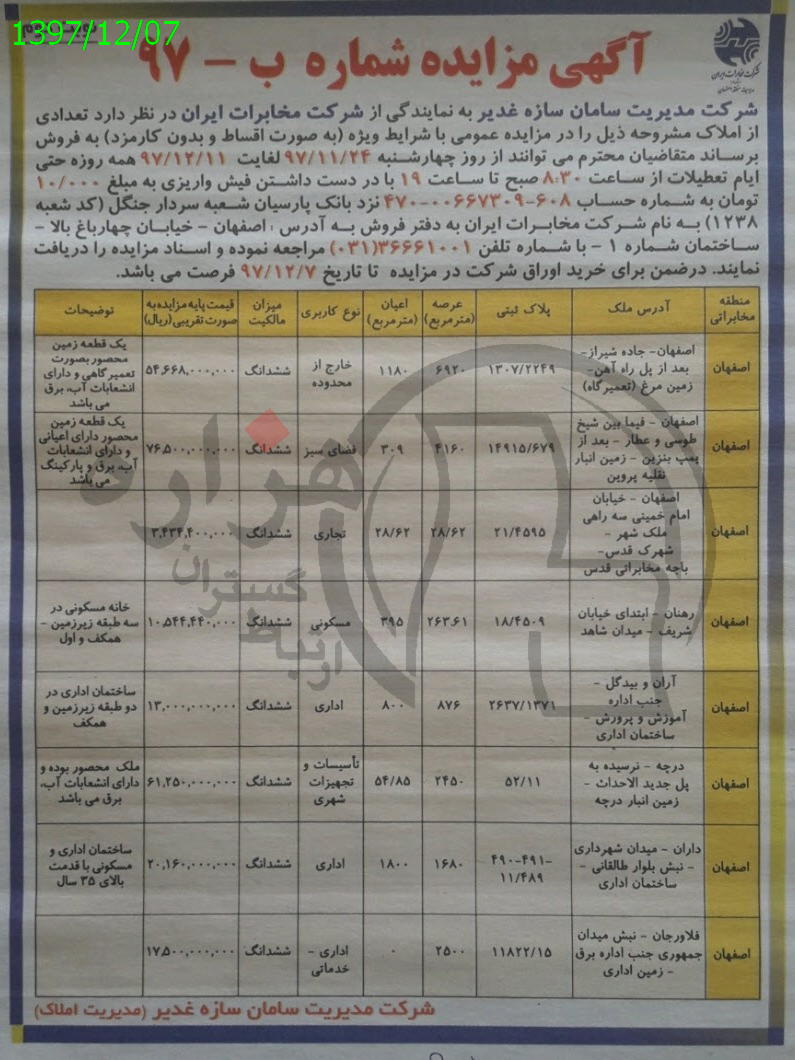 1397/12/07
شرکت مخابرات ایران
آگهی مزایده شماره ب - ۹۷
شرکت مدیریت سامان سازه غدیر به نمایندگی از شرکت مخابرات ایران در نظر دارد تعدادی
از املاک مشروحه ذیل را در مزایده عمومی با شرایط ویژه (به صورت اقساط و بدون کارمزد) به فروش
برساند متقاضیان محترم می توانند از روز چهارشنبه ۹۷/۱۱/۲۴ لغایت ۹۷/۱۲/۱۱ همه روزه حتی
ایام تعطیلات از ساعت ۸:۳۰ صبح تا ساعت ۱۹ با در دست داشتن فیش واریزی به مبلغ ۱۰/۰۰۰
تومان به شماره حساب ۶۰۸-۰۰۶۶۷۳۰۹-۴۷۰ نزد بانک پارسیان شعبه سردار جنگل (کد شعبه
۱۲۳۸) به نام شرکت مخابرات ایران به دفتر فروش به آدرس : اصفهان - خیابان چهارباغ بالا -
ساختمان شماره ۱ - با شماره تلفن ۳۶۶۶۱۰۰۱(۰۳۱) مراجعه نموده و اسناد مزایده را دریافت
نمایند. درضمن برای خرید اوراق شرکت در مزایده تا تاریخ ۹۷/۱۲/۷ فرصت می باشد.
منطقه مخابراتی | آدرس ملک | پلاک ثبتی | عرصه (مترمربع) | اعیان (مترمربع) | نوع کاربری | میزان مالکیت | قیمت پایه مزایده به صورت تقریبی (ریال) | توضیحات
اصفهان | اصفهان- جاده شیراز- بعد از پل راه آهن- زمین مرغ (تعمیرگاه) | ۱۳۰۷/۲۲۴۹ | ۶۹۲۰ | ۱۱۸۰ | خارج از محدوده | ششدانگ | ۵۴,۶۶۸,۰۰۰,۰۰۰ | یک قطعه زمین محصور بصورت تعمیر گاهی و دارای انشعابات آب، برق می باشد
اصفهان | اصفهان - فیما بین شیخ طوسی و عطار - بعد از پمپ بنزین - زمین انبار نقلیه پروین | ۱۴۹۱۵/۶۷۹ | ۴۱۶۰ | ۳۰۹ | فضای سبز | ششدانگ | ۷۶,۵۰۰,۰۰۰,۰۰۰ | یک قطعه زمین محصور دارای اعیانی و دارای انشعابات آب، برق و پارکینگ می باشد
اصفهان | اصفهان - خیابان امام خمینی سه راهی ملک شهر - شهرک قدس- باجه مخابراتی قدس | ۲۱/۴۵۹۵ | ۲۸/۶۲ | ۲۸/۶۲ | تجاری | ششدانگ | ۳,۴۳۴,۴۰۰,۰۰۰
اصفهان | رهنان - ابتدای خیابان شریف - میدان شاهد | ۱۸/۴۵۰۹ | ۲۶۳.۶۱ | ۳۹۵ | مسکونی | ششدانگ | ۱۰,۵۴۴,۴۴۰,۰۰۰ | خانه مسکونی در سه طبقه زیرزمین - همکف و اول
اصفهان | آران و بیدگل - جنب اداره آموزش و پرورش - ساختمان اداری | ۲۶۳۷/۱۳۷۱ | ۸۷۶ | ۸۰۰ | اداری | ششدانگ | ۱۳,۰۰۰,۰۰۰,۰۰۰ | ساختمان اداری در دو طبقه زیرزمین و همکف
اصفهان | درچه - نرسیده به پل جدید الاحداث - زمین انبار درچه | ۵۲/۱۱ | ۲۴۵۰ | ۵۴/۸۵ | تأسیسات و تجهیزات شهری | ششدانگ | ۶۱,۲۵۰,۰۰۰,۰۰۰ | ملک محصور بوده و دارای انشعابات آب، برق می باشد
اصفهان | داران - میدان شهرداری - نبش بلوار طالقانی - ساختمان اداری | ۴۹۰-۴۹۱- ۱۱/۴۸۹ | ۱۶۸۰ | ۱۸۰۰ | اداری | ششدانگ | ۲۰,۱۶۰,۰۰۰,۰۰۰ | ساختمان اداری و مسکونی با قدمت بالای ۳۵ سال
اصفهان | فلاورجان - نبش میدان جمهوری جنب اداره برق - زمین اداری | ۱۱۸۲۲/۱۵ | ۲۵۰۰ | ۰ | اداری - خدماتی | ششدانگ | ۱۷,۵۰۰,۰۰۰,۰۰۰
شرکت مدیریت سامان سازه غدیر (مدیریت املاک)
هزاره
گستران
ارتباط